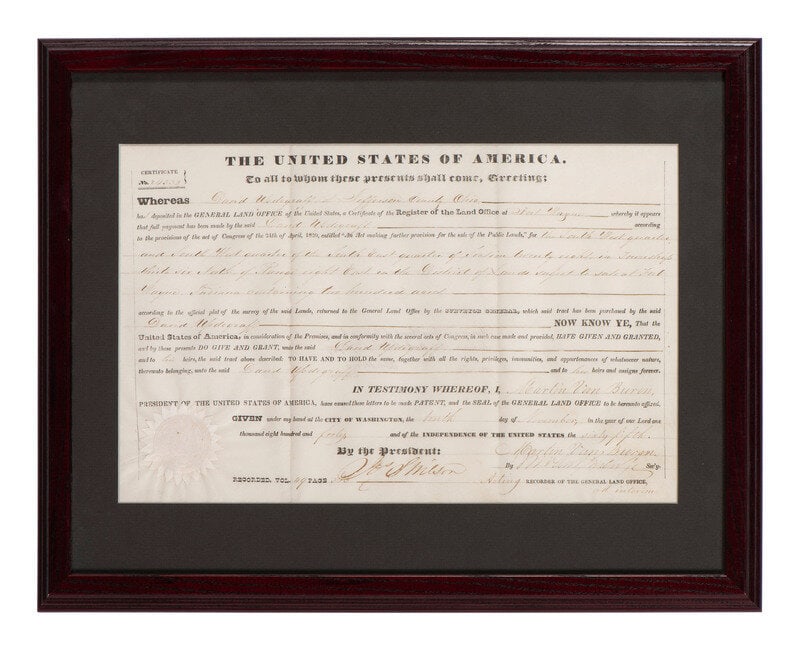 THE UNITED STATES OF AMERICA.
CERTIFICATE
No.
To all to whom these presents shall come, Greeting:
Whereas David of Jefferson County Ohio
ha deposited in the GENERAL LAND OFFICE of the United States, a Certificate of the Register of the Land Office at Fort Wayne whereby it appears
that full payment has been made by the said David according
to the provisions of the act of Congress of the 24th of April, 1820, entitled "An Act making further provision for the sale of the Public Lands," for the South West quarter
and South East quarter of the South East quarter of Section twenty eight in Township
thirty six North of Range eight East in the District of Lands subject to sale at Fort
Wayne Indiana containing two hundred acres
according to the official plat of the survey of the said Lands, returned to the General Land Office by the SURVEYOR GENERAL, which said tract has been purchased by the said
David NOW KNOW YE, That the
United States of America, in consideration of the Premises, and in conformity with the several acts of Congress, in such case made and provided, HAVE GIVEN AND GRANTED,
and by these presents DO GIVE AND GRANT, unto the said David
and to his heirs, the said tract above described: TO HAVE AND TO HOLD the same, together with all the rights, privileges, immunities, and appurtenances of whatsoever nature,
thereunto belonging, unto the said David and to his heirs and assigns forever.
IN TESTIMONY WHEREOF, I, Martin Van Buren,
PRESIDENT OF THE UNITED STATES OF AMERICA, have caused these letters to be made PATENT, and the SEAL of the GENERAL LAND OFFICE to be hereunto affixed.
GIVEN under my hand at the CITY OF WASHINGTON, the tenth day of November in the year of our Lord one
thousand eight hundred and forty and of the INDEPENDENCE OF THE UNITED STATES the sixty fifth.
By the President: Martin Van Buren
By Sec'y.
RECORDED, VOL. 49 PAGE Wilson Acting RECORDER OF THE GENERAL LAND OFFICE,
ad interim